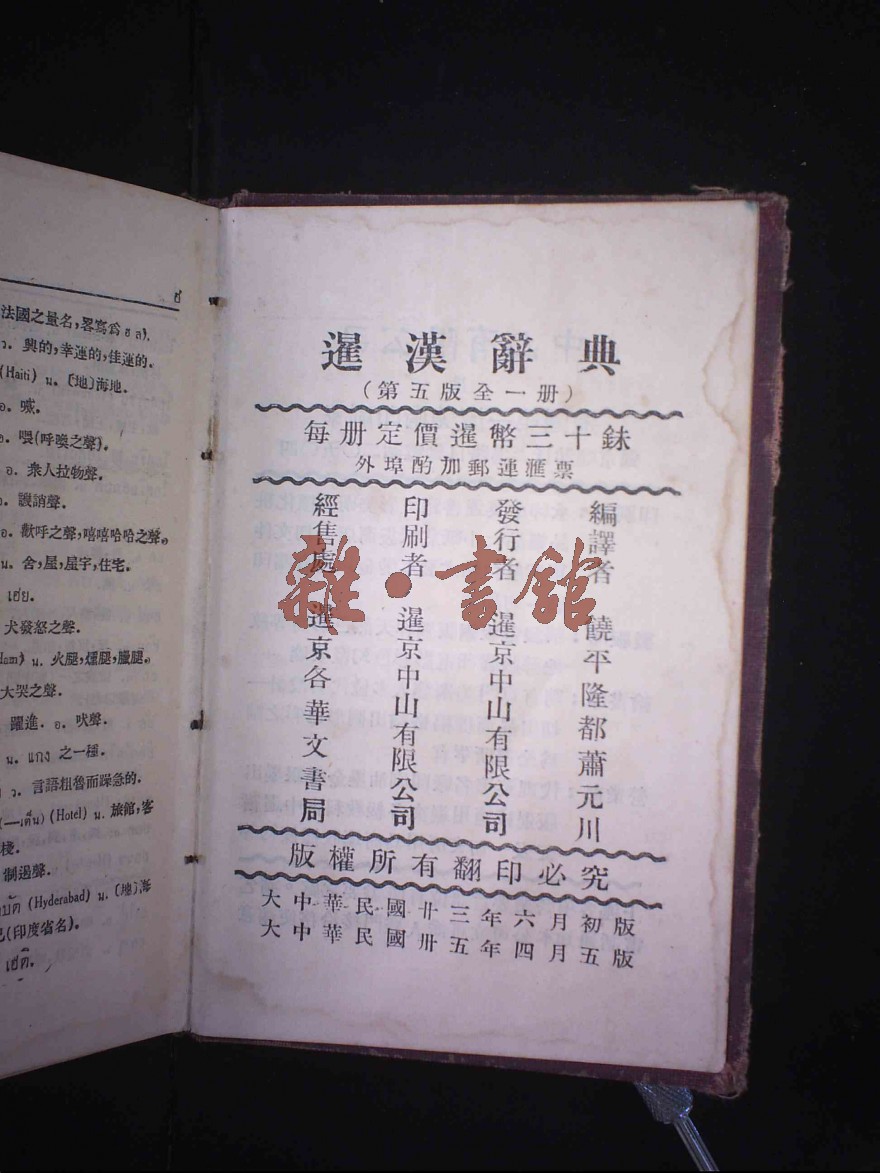 法國之量名,畧寫爲 ฮ ล).
ว. 興的,幸運的,佳運的.
(Haiti) น. 〔地〕海地.
อ. 嘁.
อ. 喂(呼喚之聲).
อ. 衆人拉物聲.
อ. 譏誚聲.
อ. 歡呼之聲,嘻嘻哈哈之聲.
น. 舍,屋,星字,住宅.
เฮ่ย.
犬發怒之聲.
น. 火腿,燻腿,臘腿.
大哭之聲.
躍進. อ. 吠聲.
น. แกง 之一種.
ว. 言語粗魯而躁急的.
(—เต็น) (Hotel) น. 旅館,客
棧.
制過聲.
(Hyderabad) น. 〔地〕海
(印度省名).
暹漢辭典
(第五版全一册)
每册定價暹幣三十銖
外埠酌加郵運滙票
編譯者 饒平隆都蕭元川
發行者 暹京中山有限公司
印刷者 暹京中山有限公司
經售處 暹京各華文書局
版權所有翻印必究
大中華民國卅三年六月初版
大中華民國卅五年四月五版
雜·書館